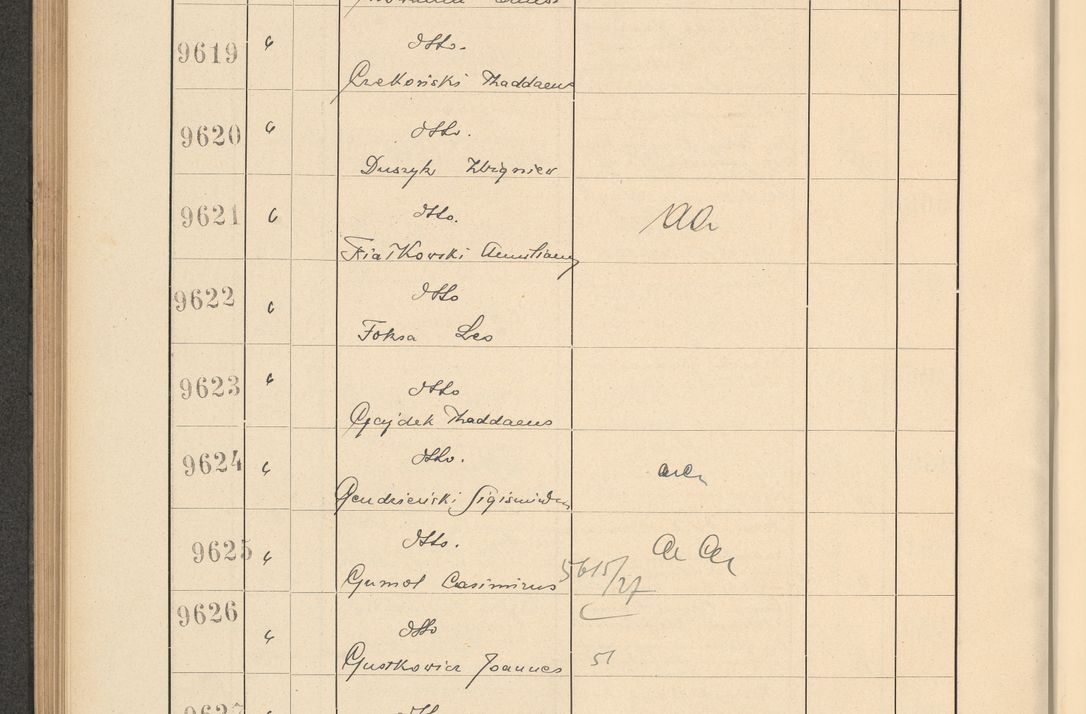 9619 6 dtto.
Czekoński Thaddaeus
9620 6 dtto.
Duszyk Zbigniew
9621 6 dtto. aa
Fiałkowski Aemilianus
9622 6 dtto
Foksa Leo
9623 6 dtto
Gajdek Thaddaeus
9624 6 dtto.
Gendzieński Sigismundus
9625 6 dtto.
Gumoł Casimirus 5615/27
9626 6 dtto
Gustkowicz Joannes 51